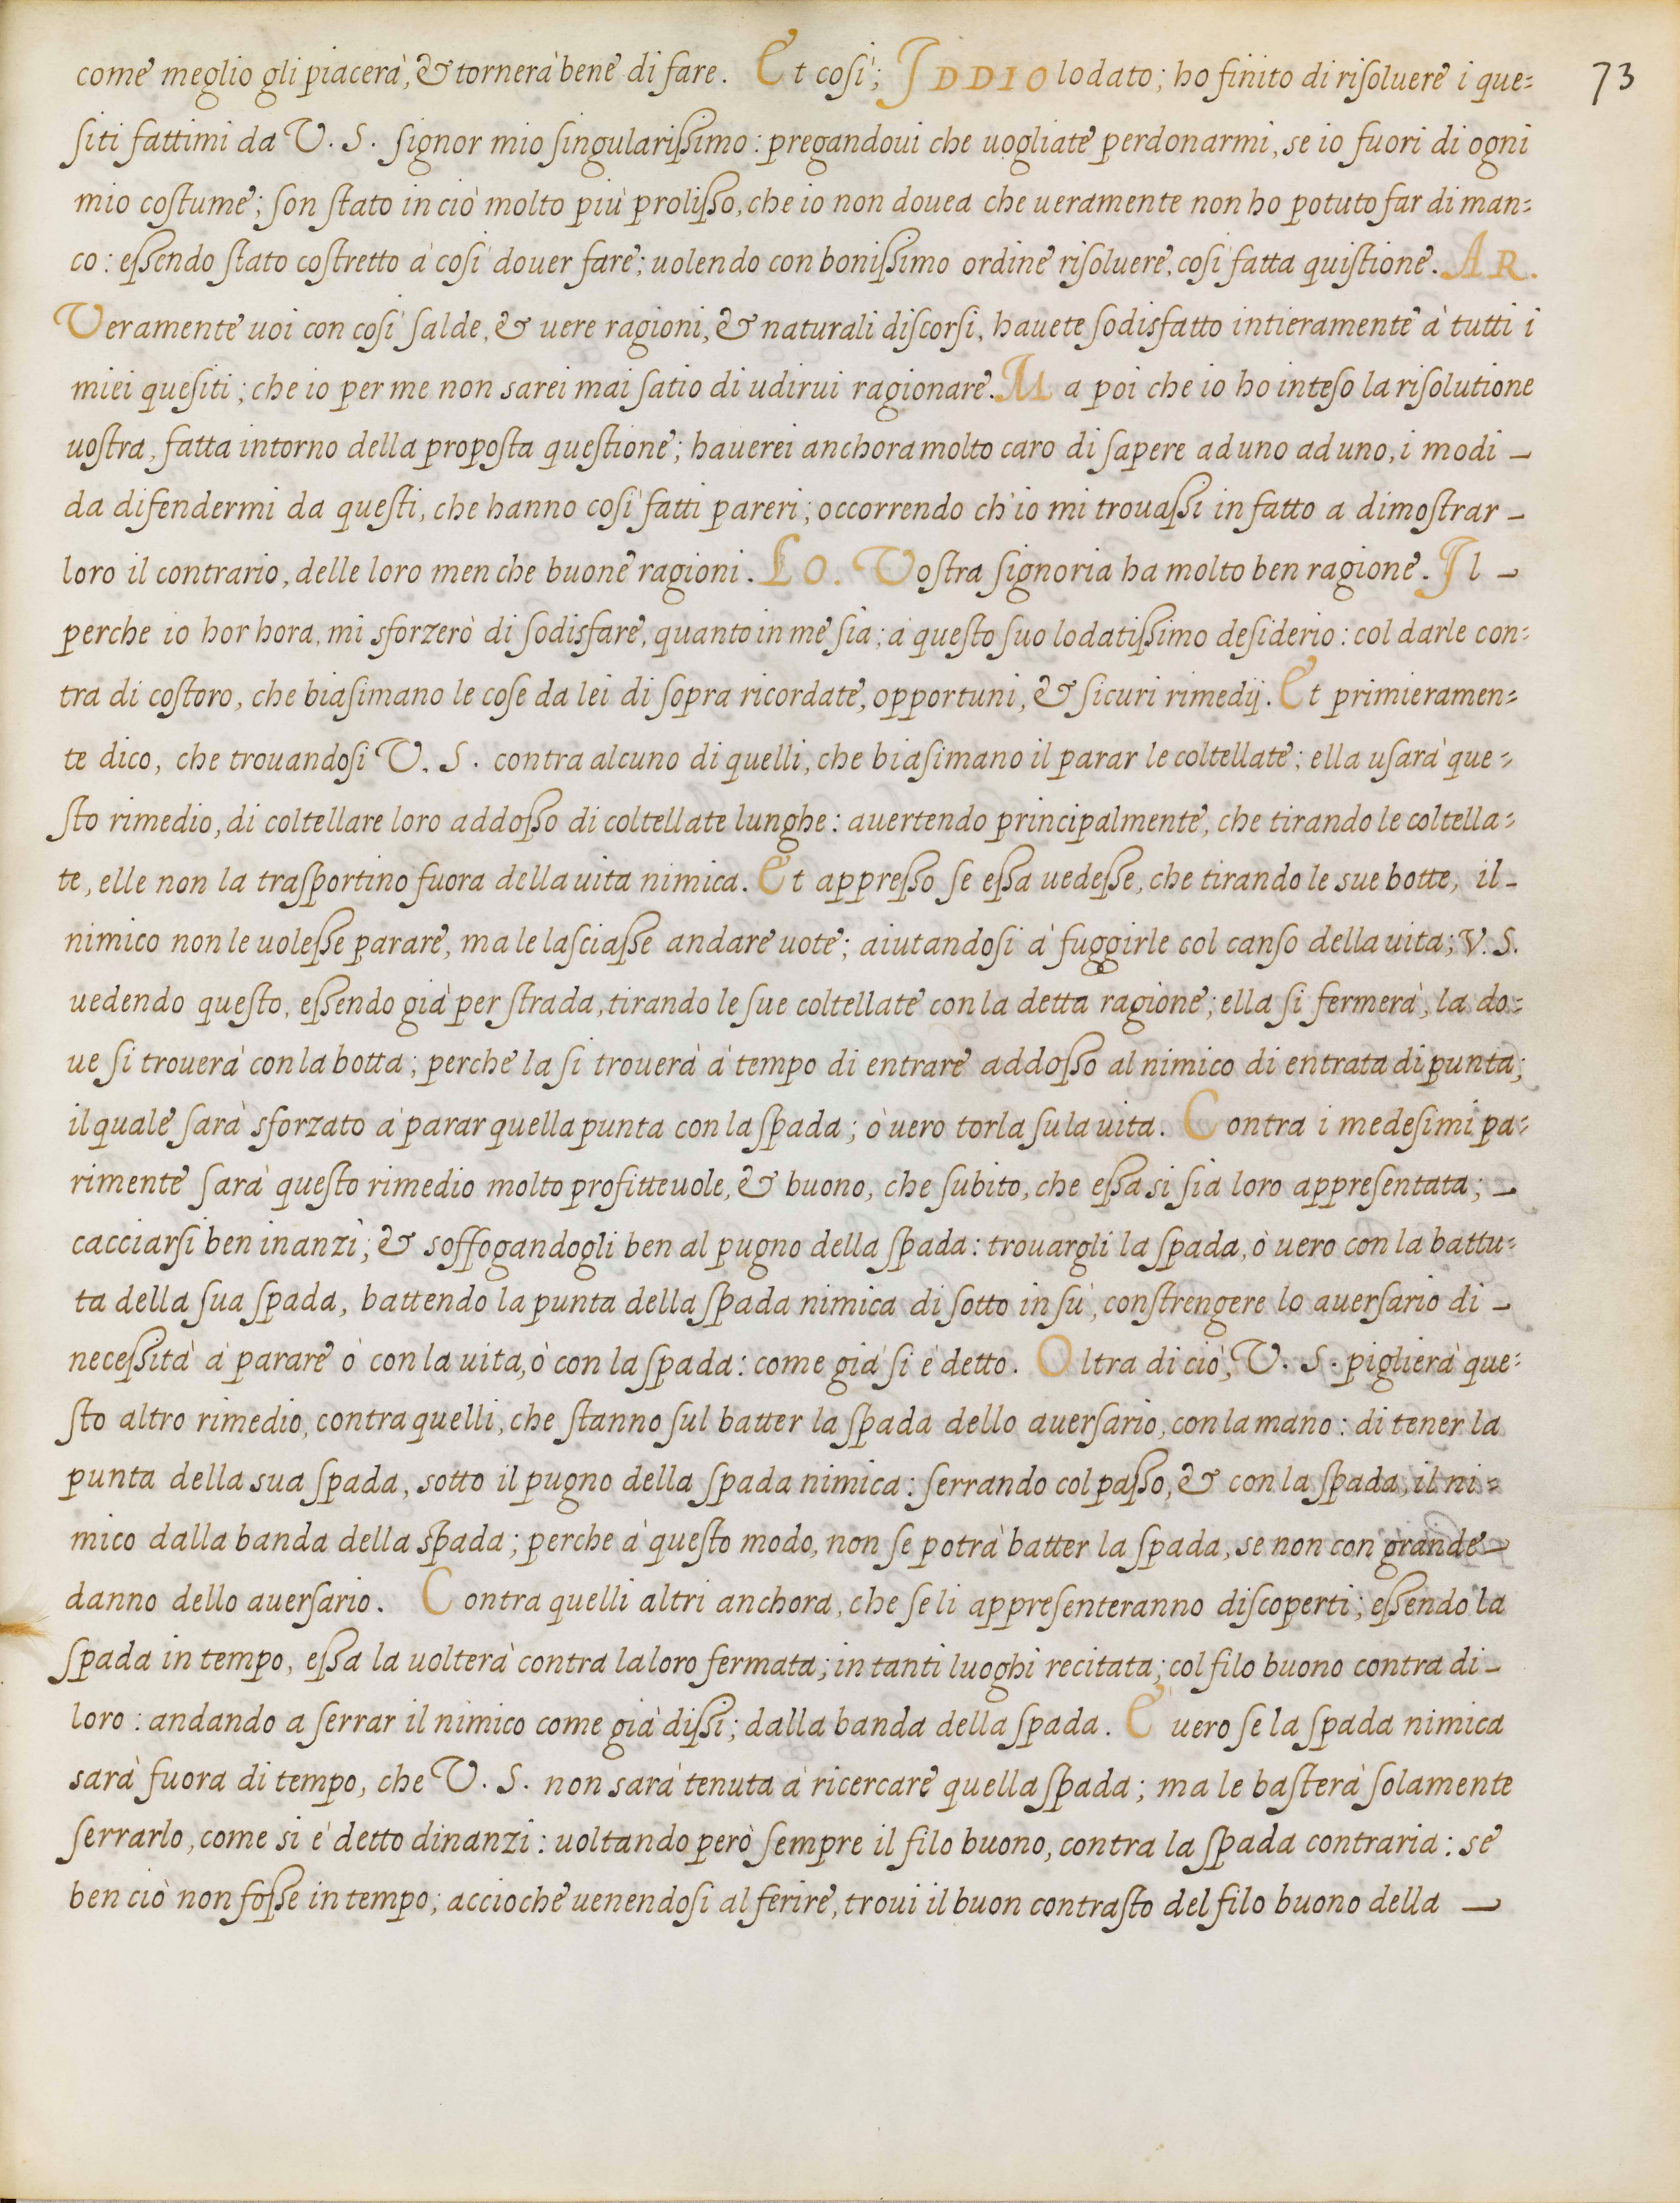 come meglio gli piacerà, & tornerà bene di fare. Et cosi; IDDIO lodato; ho finito di risoluere i que=
73
siti fattimi da V. S. signor mio singularissimo: pregandoui che uogliate perdonarmi, se io fuori di ogni
mio costume; son stato in ciò molto più prolisso, che io non douea che ueramente non ho potuto far di man=
co: essendo stato costretto à cosi douer fare; uolendo con bonissimo ordine risoluere, cosi fatta quistione. AR.
Veramente uoi con cosi salde, & uere ragioni, & naturali discorsi, hauete sodisfatto intieramente à tutti i
miei quesiti; che io per me non sarei mai satio di udirui ragionare. Ma poi che io ho inteso la risolutione
uostra, fatta intorno della proposta questione; hauerei anchora molto caro di sapere ad uno ad uno, i modi –
da difendermi da questi, che hanno cosi fatti pareri; occorrendo ch'io mi trouassi in fatto a dimostrar –
loro il contrario, delle loro men che buone ragioni. LO. Vostra signoria ha molto ben ragione. Il –
perche io hor hora, mi sforzerò di sodisfare, quanto in me sia; à questo suo lodatissimo desiderio: col darle con=
tra di costoro, che biasimano le cose da lei di sopra ricordate, opportuni, & sicuri rimedij. Et primieramen=
te dico, che trouandosi V. S. contra alcuno di quelli, che biasimano il parar le coltellate; ella usarà que=
sto rimedio, di coltellare loro addosso di coltellate lunghe: auertendo principalmente, che tirando le coltella=
te, elle non la trasportino fuora della uita nimica. Et appresso se essa uedesse, che tirando le sue botte, il –
nimico non le uolesse parare, ma le lasciasse andare uote; aiutandosi à fuggirle col canso della uita; V. S.
uedendo questo, essendo già per strada, tirando le sue coltellate con la detta ragione; ella si fermerà, la do=
ue si trouerà con la botta; perche la si trouerà à tempo di entrare addosso al nimico di entrata di punta;
il quale sarà sforzato à parar quella punta con la spada; ò uero torla su la uita. Contra i medesimi pa=
rimente sarà questo rimedio molto profitteuole, & buono, che subito, che essa si sia loro appresentata; –
cacciarsi ben inanzi; & soffogandogli ben al pugno della spada: trouargli la spada, ò uero con la battu=
ta della sua spada, battendo la punta della spada nimica di sotto in sù, constrengere lo auersario di –
necessità à parare ò con la uita, ò con la spada: come già si è detto. Oltra di ciò, V. S. piglierà que=
sto altro rimedio, contra quelli, che stanno sul batter la spada dello auersario, con la mano: di tener la
punta della sua spada, sotto il pugno della spada nimica: serrando col passo, & con la spada, il ni=
mico dalla banda della spada; perche à questo modo, non se potrà batter la spada, se non con grande –
danno dello auersario. Contra quelli altri anchora, che se li appresenteranno discoperti; essendo la
spada in tempo, essa la uolterà contra la loro fermata; in tanti luoghi recitata; col filo buono contra di –
loro: andando a serrar il nimico come già dissi; dalla banda della spada. E uero se la spada nimica
sarà fuora di tempo, che V. S. non sarà tenuta à ricercare quella spada; ma le basterà solamente
serrarlo, come si è detto dinanzi: uoltando però sempre il filo buono, contra la spada contraria: se
ben ciò non fosse in tempo; accioche uenendosi al ferire, troui il buon contrasto del filo buono della –